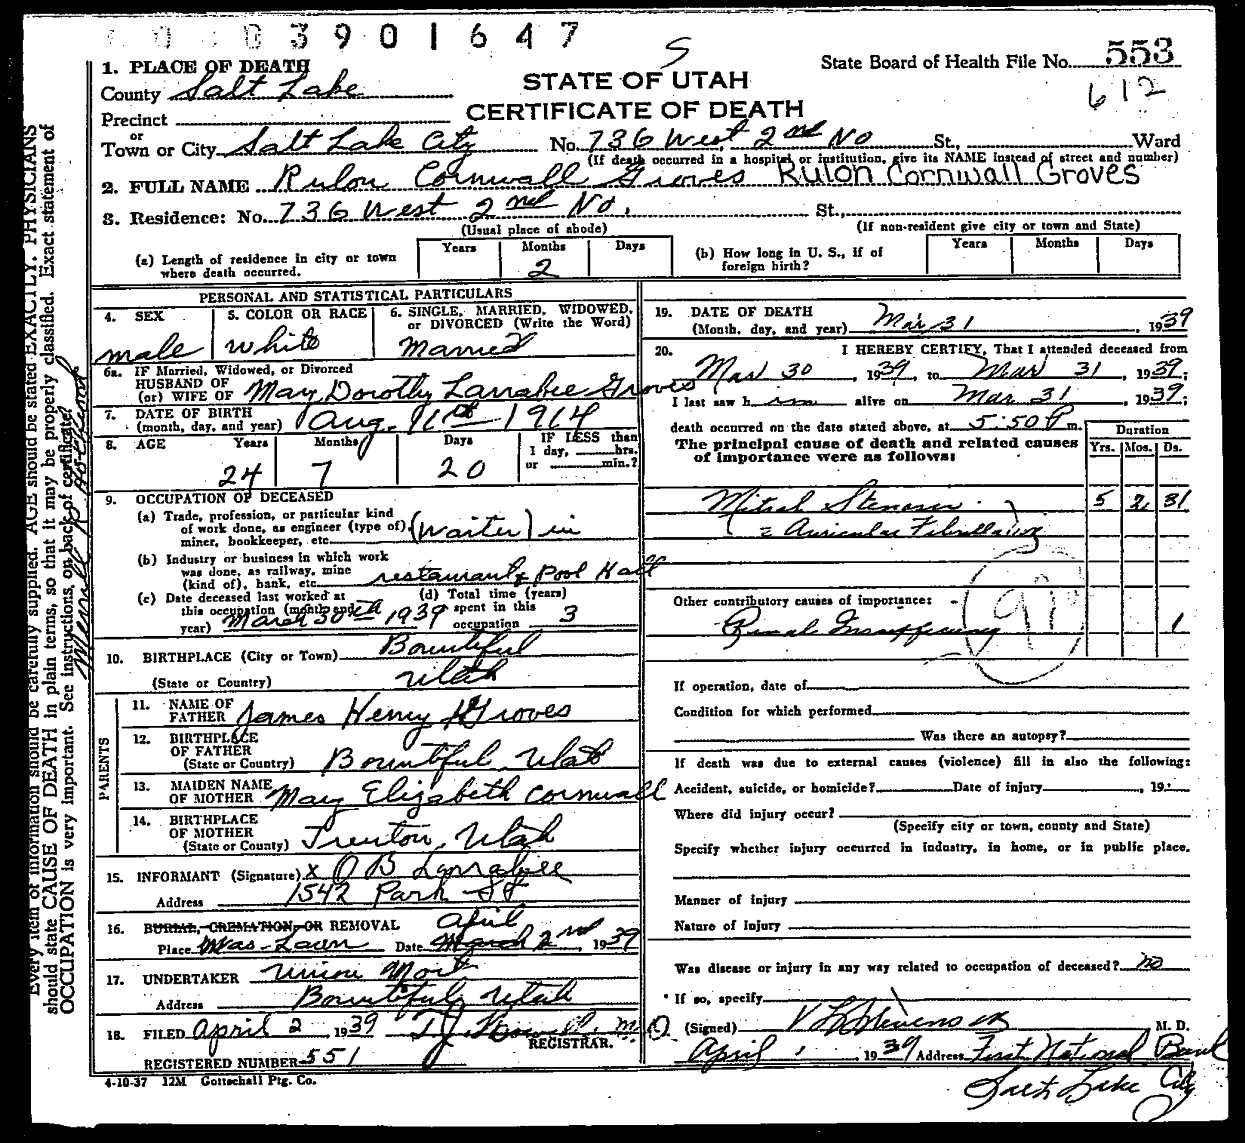 3901647
S
State Board of Health File No. 553
612
STATE OF UTAH
CERTIFICATE OF DEATH
1. PLACE OF DEATH
County Salt Lake
Precinct
or
Town or City Salt Lake City No. 736 West 2nd No St., Ward
(If death occurred in a hospital or institution, give its NAME instead of street and number)
2. FULL NAME Rulon Cornwall Groves Rulon Cornwall Groves
3. Residence: No. 736 West 2nd No. St.,
(Usual place of abode) (If non-resident give city or town and State)
(a) Length of residence in city or town where death occurred. Years Months 2 Days
(b) How long in U. S., if of foreign birth? Years Months Days
PERSONAL AND STATISTICAL PARTICULARS
4. SEX male
5. COLOR OR RACE white
6. SINGLE, MARRIED, WIDOWED, or DIVORCED (Write the Word) Married
6a. IF Married, Widowed, or Divorced
HUSBAND OF
(or) WIFE OF May Dorothy Larrabee Groves
7. DATE OF BIRTH
(month, day, and year) Aug. 11th 1914
8. AGE Years 24 Months 7 Days 20 IF LESS than 1 day, hrs. or min.?
9. OCCUPATION OF DECEASED
(a) Trade, profession, or particular kind
of work done, as engineer (type of), (waiter) in
miner, bookkeeper, etc.
(b) Industry or business in which work
was done, as railway, mine
(kind of), bank, etc. restaurant & Pool Hall
(c) Date deceased last worked at
this occupation (month and
year) March 30th 1939
(d) Total time (years)
spent in this
occupation 3
10. BIRTHPLACE (City or Town) Bountiful
(State or Country) Utah
PARENTS
11. NAME OF
FATHER James Henry Groves
12. BIRTHPLACE
OF FATHER
(State or Country) Bountiful Utah
13. MAIDEN NAME
OF MOTHER May Elizabeth Cornwall
14. BIRTHPLACE
OF MOTHER
(State or Country) Trenton, Utah
15. INFORMANT (Signature) x O B Larrabee
Address 1542 Park St
16. BURIAL, CREMATION, OR REMOVAL April
Place Was-Lawn Date March 2nd 1939
17. UNDERTAKER Union Mort
Address Bountiful, Utah
18. FILED April 2, 1939 M.D.
REGISTRAR.
REGISTERED NUMBER 551
4-10-37 12M Gottschall Ptg. Co.
19. DATE OF DEATH
(Month, day, and year) Mar 31, 1939
20. I HEREBY CERTIFY, That I attended deceased from
Mar 30, 1939, to Mar 31, 1939;
I last saw him alive on Mar 31, 1939;
death occurred on the date stated above, at 5:50 P m.
The principal cause of death and related causes
of importance were as follows:
Duration
Yrs. Mos. Ds.
Mitral Stenosis 5 2 31
Auricular Fibrillation
Other contributory causes of importance:
Renal Insufficiency 1
If operation, date of
Condition for which performed
Was there an autopsy?
If death was due to external causes (violence) fill in also the following:
Accident, suicide, or homicide? Date of injury , 19
Where did injury occur?
(Specify city or town, county and State)
Specify whether injury occurred in industry, in home, or in public place.
Manner of injury
Nature of Injury
Was disease or injury in any way related to occupation of deceased? no
If so, specify
(Signed) V L Stevenson M. D.
April 1, 1939 Address First National Bank
Salt Lake City
Every item of information should be carefully supplied. AGE should be stated EXACTLY. PHYSICIANS
should state CAUSE OF DEATH in plain terms, so that it may be properly classified. Exact statement of
OCCUPATION is very important. See instructions on back of certificate.